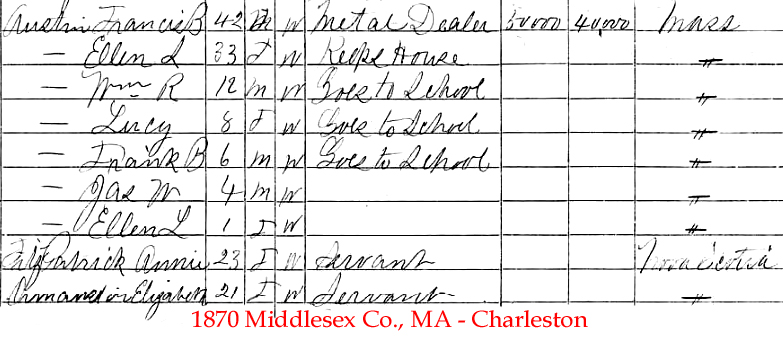 Austin Francis B 42 M W Metal Dealer 50,000 40,000 Mass
— Ellen L 33 F W Keeps House "
— Wm R 12 M W Goes to School "
— Lucy 8 F W Goes to School "
— Frank B 6 M W Goes to School "
— Jas W 4 M W "
— Ellen L 1 F W "
Fitzpatrick Annie 23 F W Servant Nova Scotia
Elizabeth 21 F W Servant "
1870 Middlesex Co., MA - Charleston